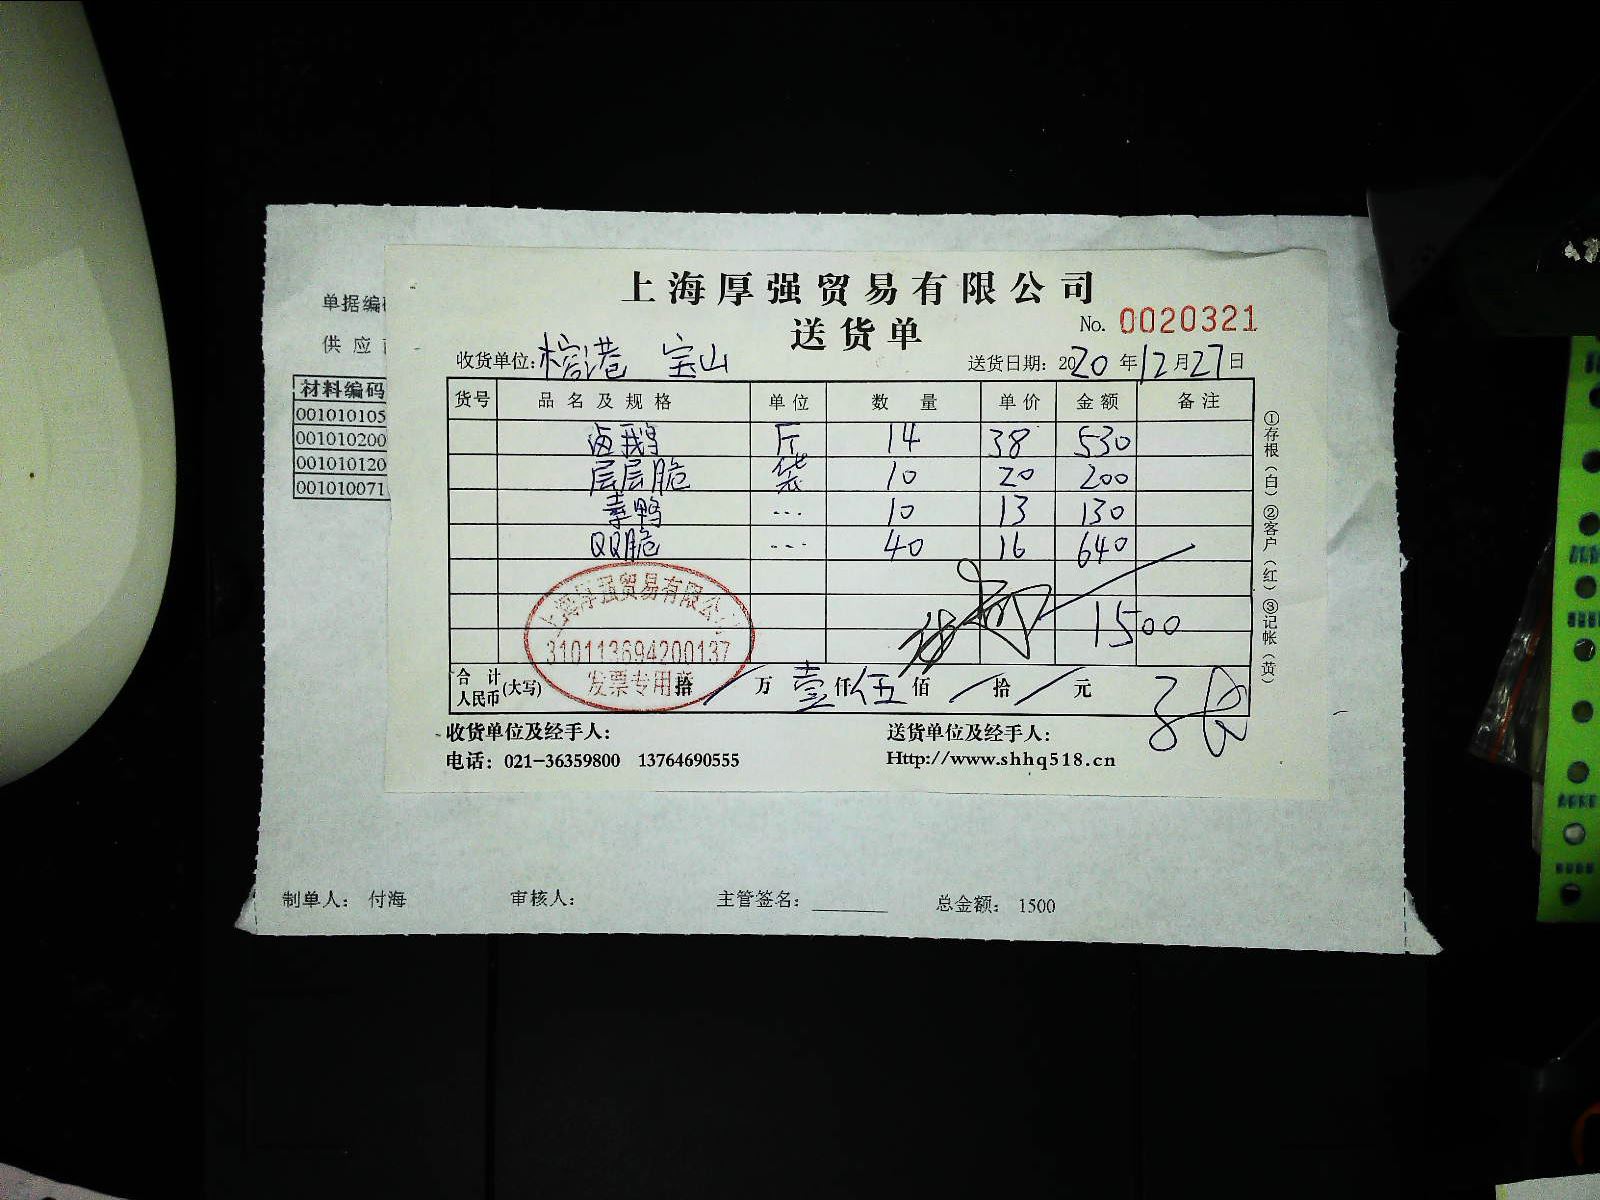 上海厚强贸易有限公司
送货单
No. 0020321
收货单位: 榕港 宝山
送货日期: 2020年12月27日
货号 品名及规格 单位 数量 单价 金额 备注
卤鹅 斤 14 38 530
层层脆 袋 10 20 200
素鸭 --- 10 13 130
QQ脆 --- 40 16 640
1500
合计人民币(大写) 拾 / 万 壹 仟 伍 佰 / 拾 / 元
上海厚强贸易有限公司
310113694200137
发票专用章
收货单位及经手人:
送货单位及经手人:
电话: 021-36359800 13764690555
Http://www.shhq518.cn
①存根(白)②客户(红)③记帐(黄)
单据编
供应
材料编码
001010105
001010200
001010120
001010071
制单人: 付海 审核人: 主管签名: 总金额: 1500